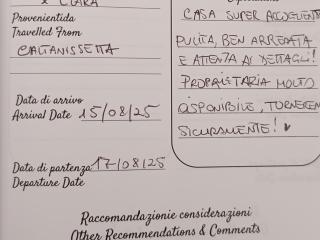 & CLARA
Provenientida
Travelled From
CALTANISSETTA
Data di arrivo
Arrival Date 15/08/25
Data di partenza 17/08/25
Departure Date
CASA SUPER ACCOGLIENTE
PULITA, BEN ARREDATA
E ATTENTA AI DETTAGLI!
PROPRIETARIA MOLTO
DISPONIBILE, TORNEREMO
SICURAMENTE!
Raccomandazionie considerazioni
Other Recommendations & Comments